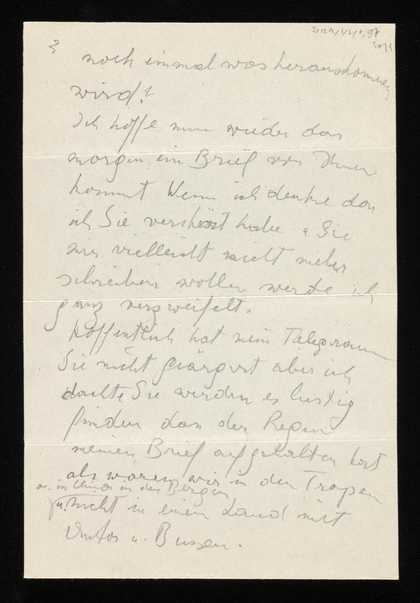 noch immal was herauskommen
wird?
Ich hoffe nun wieder das
morgen ein Brief von Ihnen
kommt Wenn ich denke das
ich Sie verstösst habe u Sie
mir vielleicht nicht mehr
schreiben wollen werde ich
ganz verzweifelt.
Hoffentlich hat mein Telegramm
Sie nicht geärgert aber ich
dachte Sie würden es lustig
finden dan der Regen
meinen Brief aufgehalten hat
als wären wir in den Tropen
o. in China in den Bergen
u. nicht in einem Land mit
Autos u. Bussen.